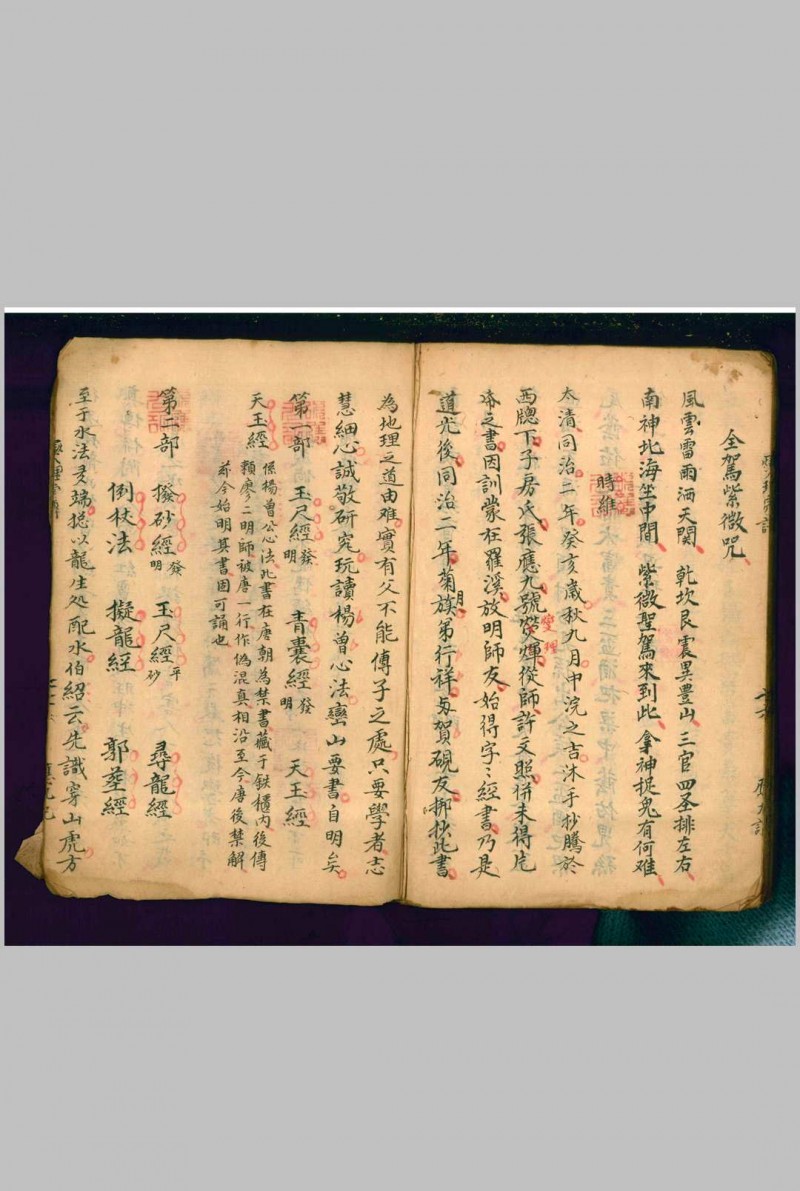 全駕紫微咒
風雲雷雨洒天関 乾坎艮震巽豐山 三官四圣排左右
南神北海坐中間 紫微聖駕來到此 拿神捉鬼有何难
時維
太清同治二年癸亥歲秋九月中浣之吉沐手抄騰於
西牕下子房氏張應九號熒煇從師許文照併未得片
之書因訓蒙在羅溪放明師友始得字々經書乃是
燮理
道光後同治二年菊月族弟行祥与賀硯友挪抄此書
為地理之道由难實有父不能傳子之處只要學者志
慧細心誠敬研究玩讀楊曾心法巒山要書自明矣
第一部 玉尺經發明 青囊經發明 天玉經
天玉經 係楊曾公心法此書在唐朝為禁書藏于鉄櫃内後傳
賴廖二明師被唐一行作偽混真相沿至今唐後禁解
茲今始明其書固可誦也
第二部 撥砂經發明 玉尺經平砂 尋龍經
倒杖法 擬龍經 郭塟經
至于水法多端揔以龍生処配水伯紹云先識穿山虎方